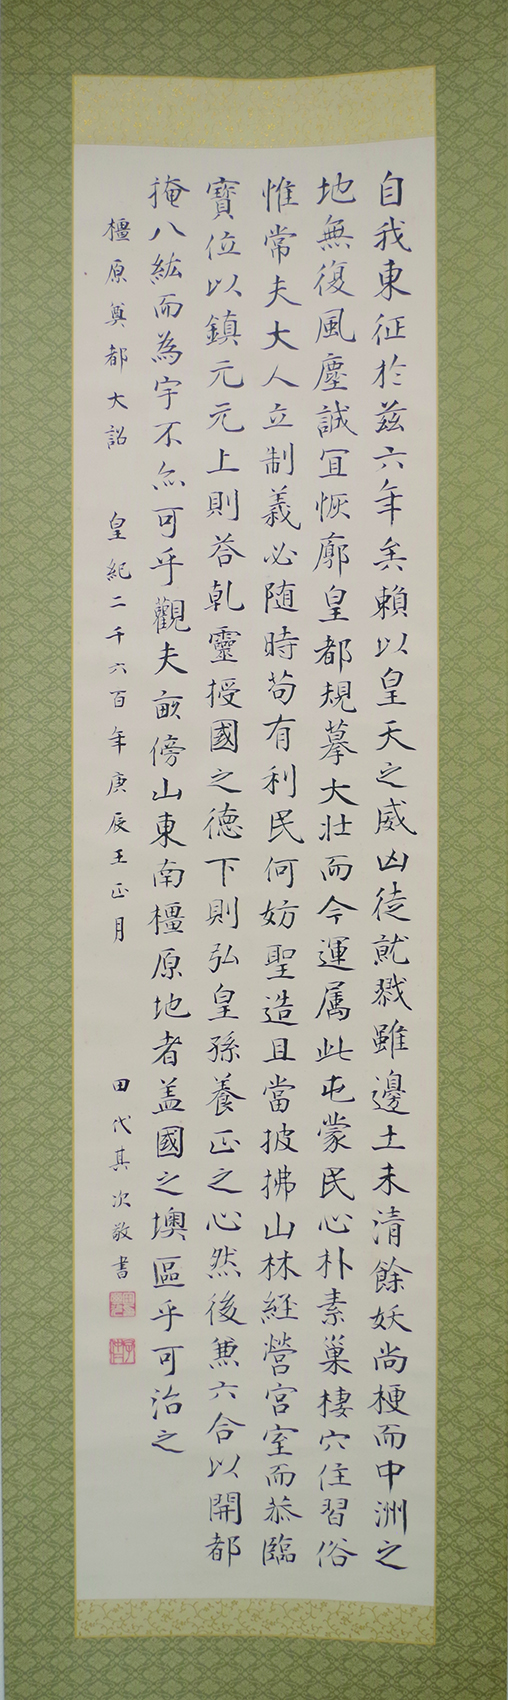 自我東征於茲六年矣賴以皇天之威凶徒就戮雖邊土未清餘妖尚梗而中洲之
地無復風塵誠冝恢廓皇都規摹大壯而今運属此屯蒙民心朴素巢棲穴住習俗
惟常夫大人立制義必随時苟有利民何妨聖造且當披拂山林経營宮室而恭臨
寶位以鎮元元上則荅乾靈授國之德下則弘皇孫養正之心然後兼六合以開都
掩八紘而為宇不亦可乎觀夫畝傍山東南橿原地者盖國之墺區乎可治之
橿原奠都大詔 皇紀二千六百年庚辰王正月 田代其次敬書